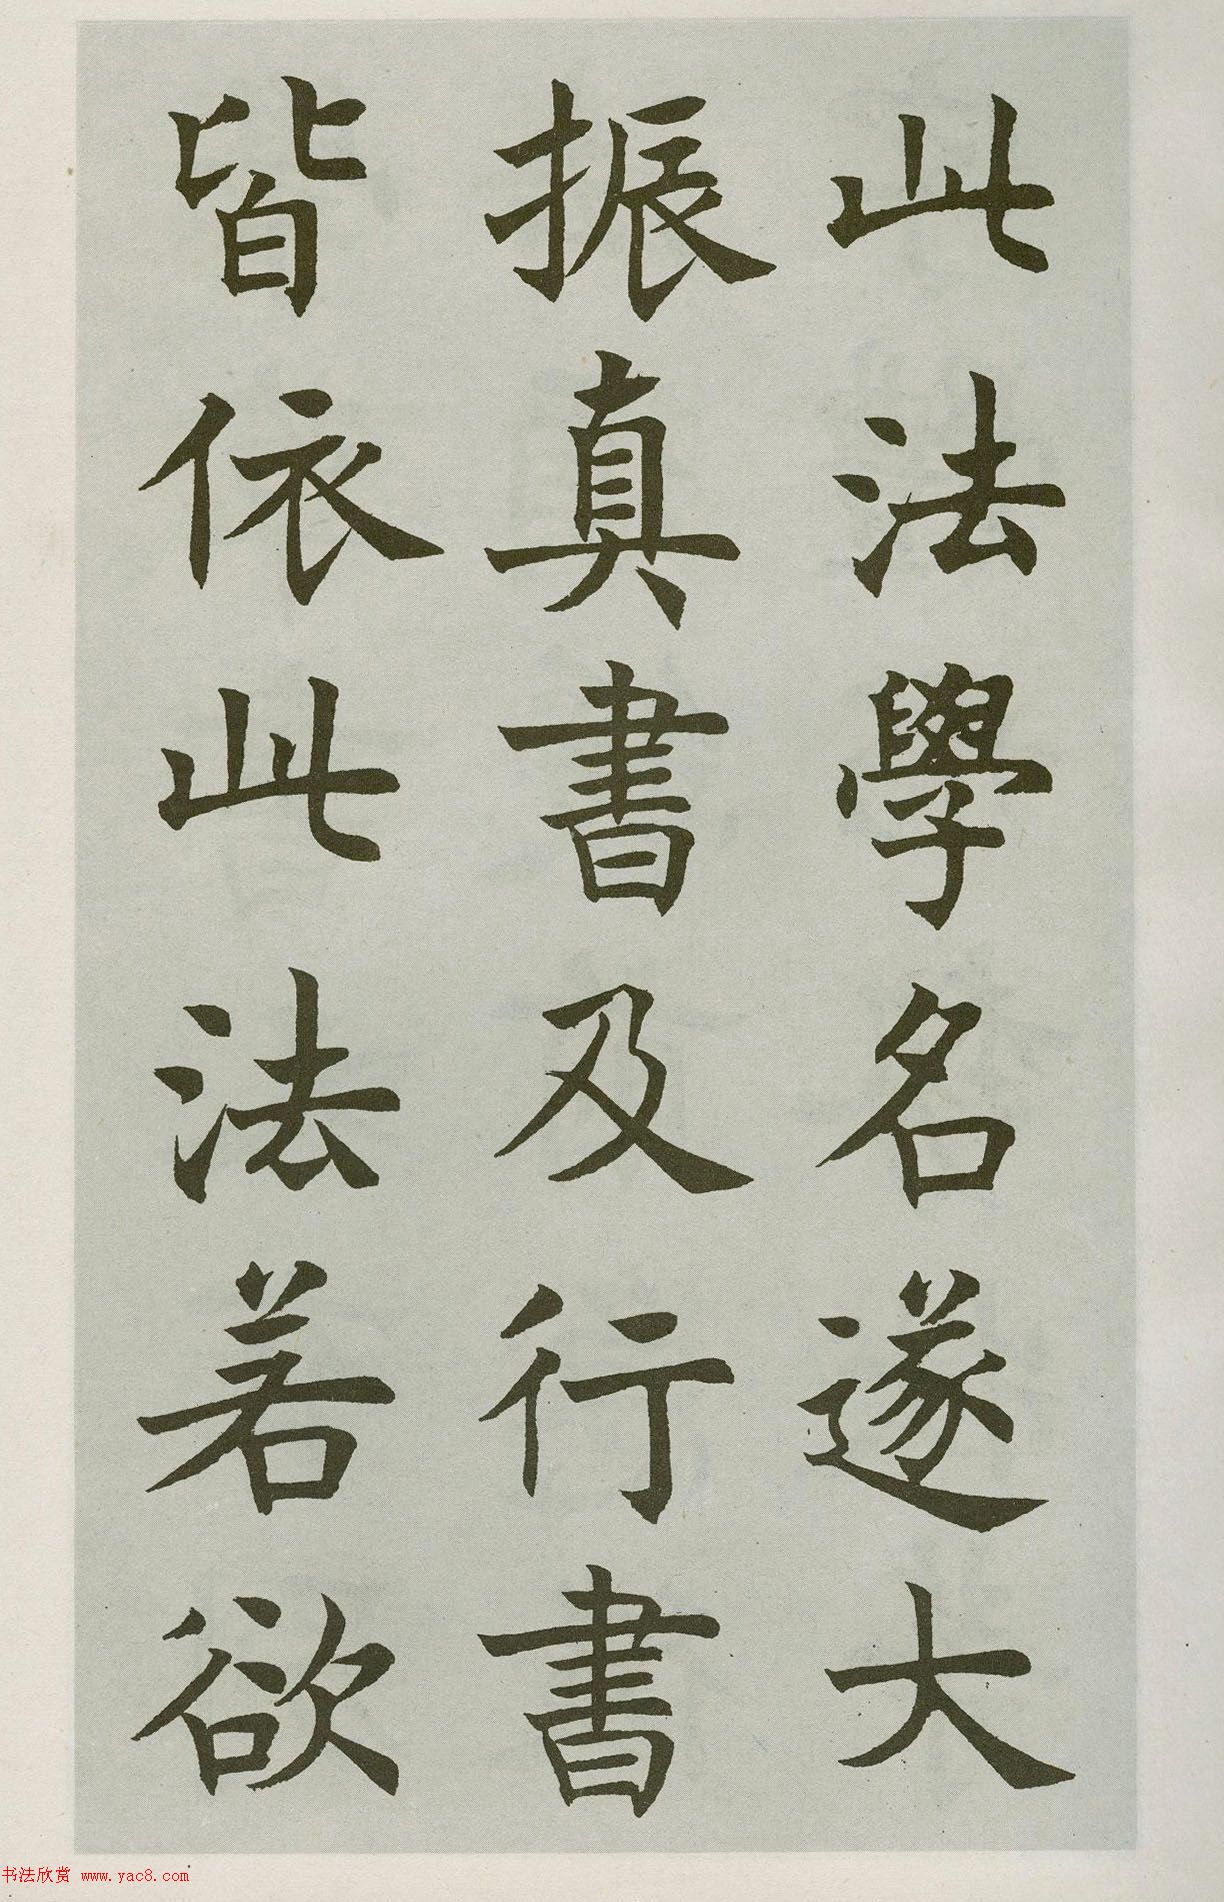 此法學名遂大
振真書及行書
皆依此法若欲
书法欣赏 www.yac8.com